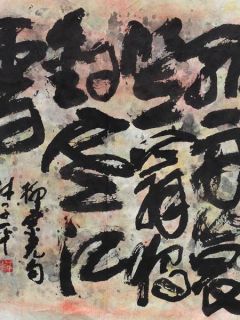 孤舟蓑
笠翁獨
釣寒江
雪
柳宗元句